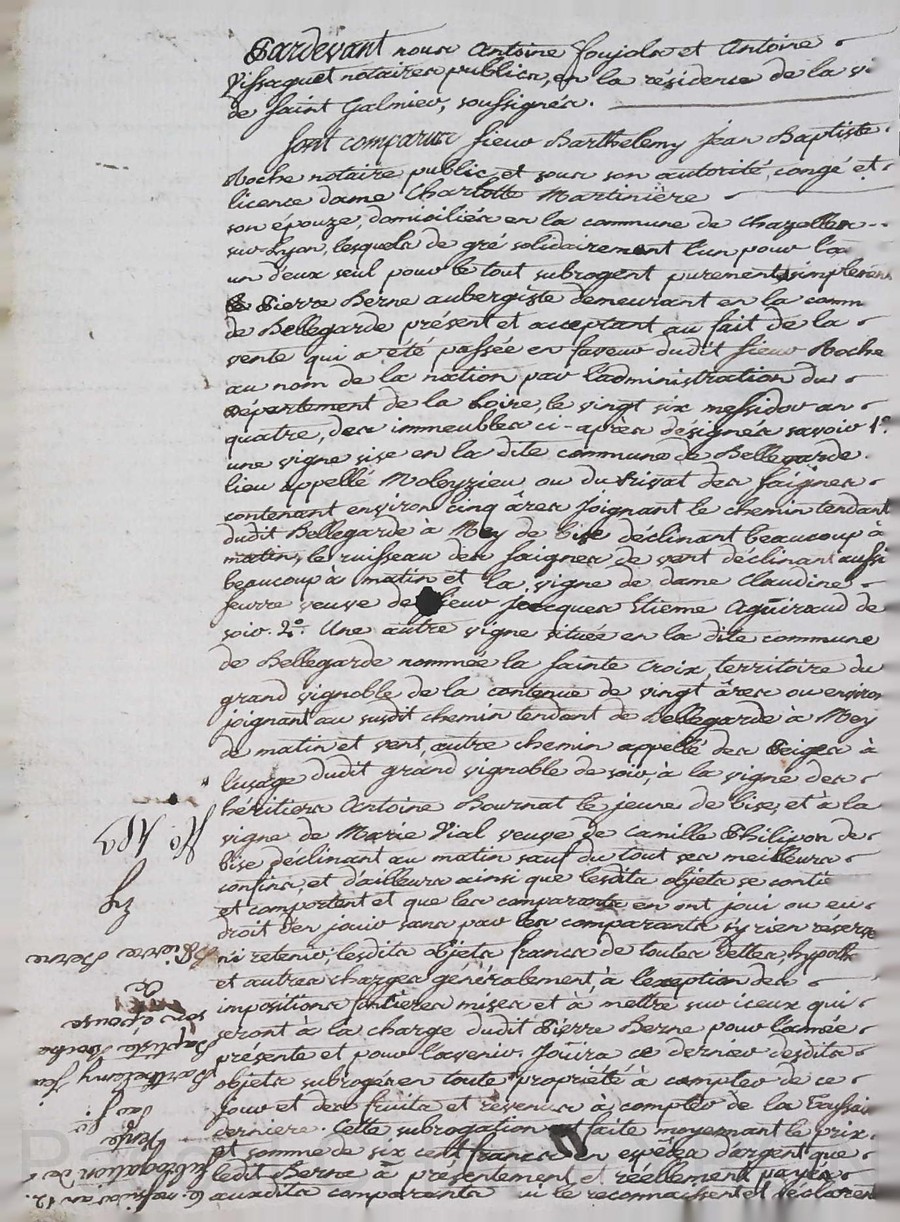 Pardevant nous Antoine Foujols et Antoine
Vissaguet notaires publics, en la résidence de la vi
de Saint Galmier, soussignés.
Sont comparus sieur Barthelemy Jean Baptiste
Roche notaire public, et sous son autorité, congé et
licence dame Charlotte Martinière
son épouze, domiciliés en la commune de Chazelles
sur Lyon, lesquels de gré solidairement l'un pour l'au
un d'eux seul pour le tout subrogent purement simplement
Pierre Berne aubergiste demeurant en la comm
de Bellegarde présent et acceptant au fait de la
vente qui a été passée en faveur dudit sieur Roche
au nom de la nation par l'administration du
département de la Loire, le vingt six messidor an
quatre, des immeubles ci-après désignés savoir 1°.
une vigne sise en la dite commune de Bellegarde.
lieu appellé Moleyzieu ou du des Saignes
contenant environ cinq âres joignant le chemin tendant
dudit Bellegarde à Mey de bise déclinant beaucoup à
matin, le ruisseau des Saignes de vent déclinant aussi
beaucoup à matin et la vigne de dame Claudine
feurre veuve de sieur jacques Etienne Aguiraud de
soir. 2°. Une autre vigne située en la dite commune
de Bellegarde nommée la Sainte Croix, territoire du
grand vignoble de la contenue de vingt âres ou environ
joignant au susdit chemin tendant de Bellegarde à Mey
de matin et vent, autre chemin appellé des à
l'usage dudit grand vignoble de soir, à la vigne des
héritiers Antoine Bournat le jeune de bise, et à la
vigne de Marie Vial veuve de Camille Philipon de
bise déclinant au matin sauf du tout ses meilleurs
confins, et d'ailleurs ainsi que lesdits objets se conti
et comportent et que les comparants en ont joui ou eu
droit d'en jouir sans par les comparants s'y rien réserve
ni retenir, lesdits objets francs de toutes dettes, hypoth
et autres charges généralement, à l'exception des
impositions foncières mises et à mettre sur iceux qui
seront à la charge dudit Pierre Berne pour l'année
présente et pour l'avenir. Joüira ce dernier desdits
objets subrogés en toute propriété à compter de ce
jour et des fruits et revenus à compter de la Toussai
derniere. Cette subrogation faite moyennant le prix
et somme de six cent francs en espèces d'argent que
ledit Berne à présentement et réellement payés
auxdits comparants ui le reconnaissent et déclarent
6 an 12.
subrogation de
Barthelemy Jea
Baptiste Roche
son épouse
à
Pierre Berne